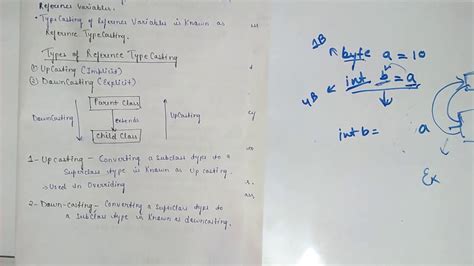 Reference Variables.
• TypeCasting of Reference Variables is Known as
Reference TypeCasting.
Types of Reference TypeCasting
① UpCasting (Implicit)
② DownCasting (Explicit)
Parent Class
DownCasting
extends
UpCasting
Child Class
1- Upcasting - Converting a Subclass type to a
Superclass type is Known as Up casting.
→ Used in Overriding
2- Down-casting - Converting a Superclass type to
a Subclass type is Known as downcasting.
1B
byte a = 10
4B
int b = a
int b =
a
Ex